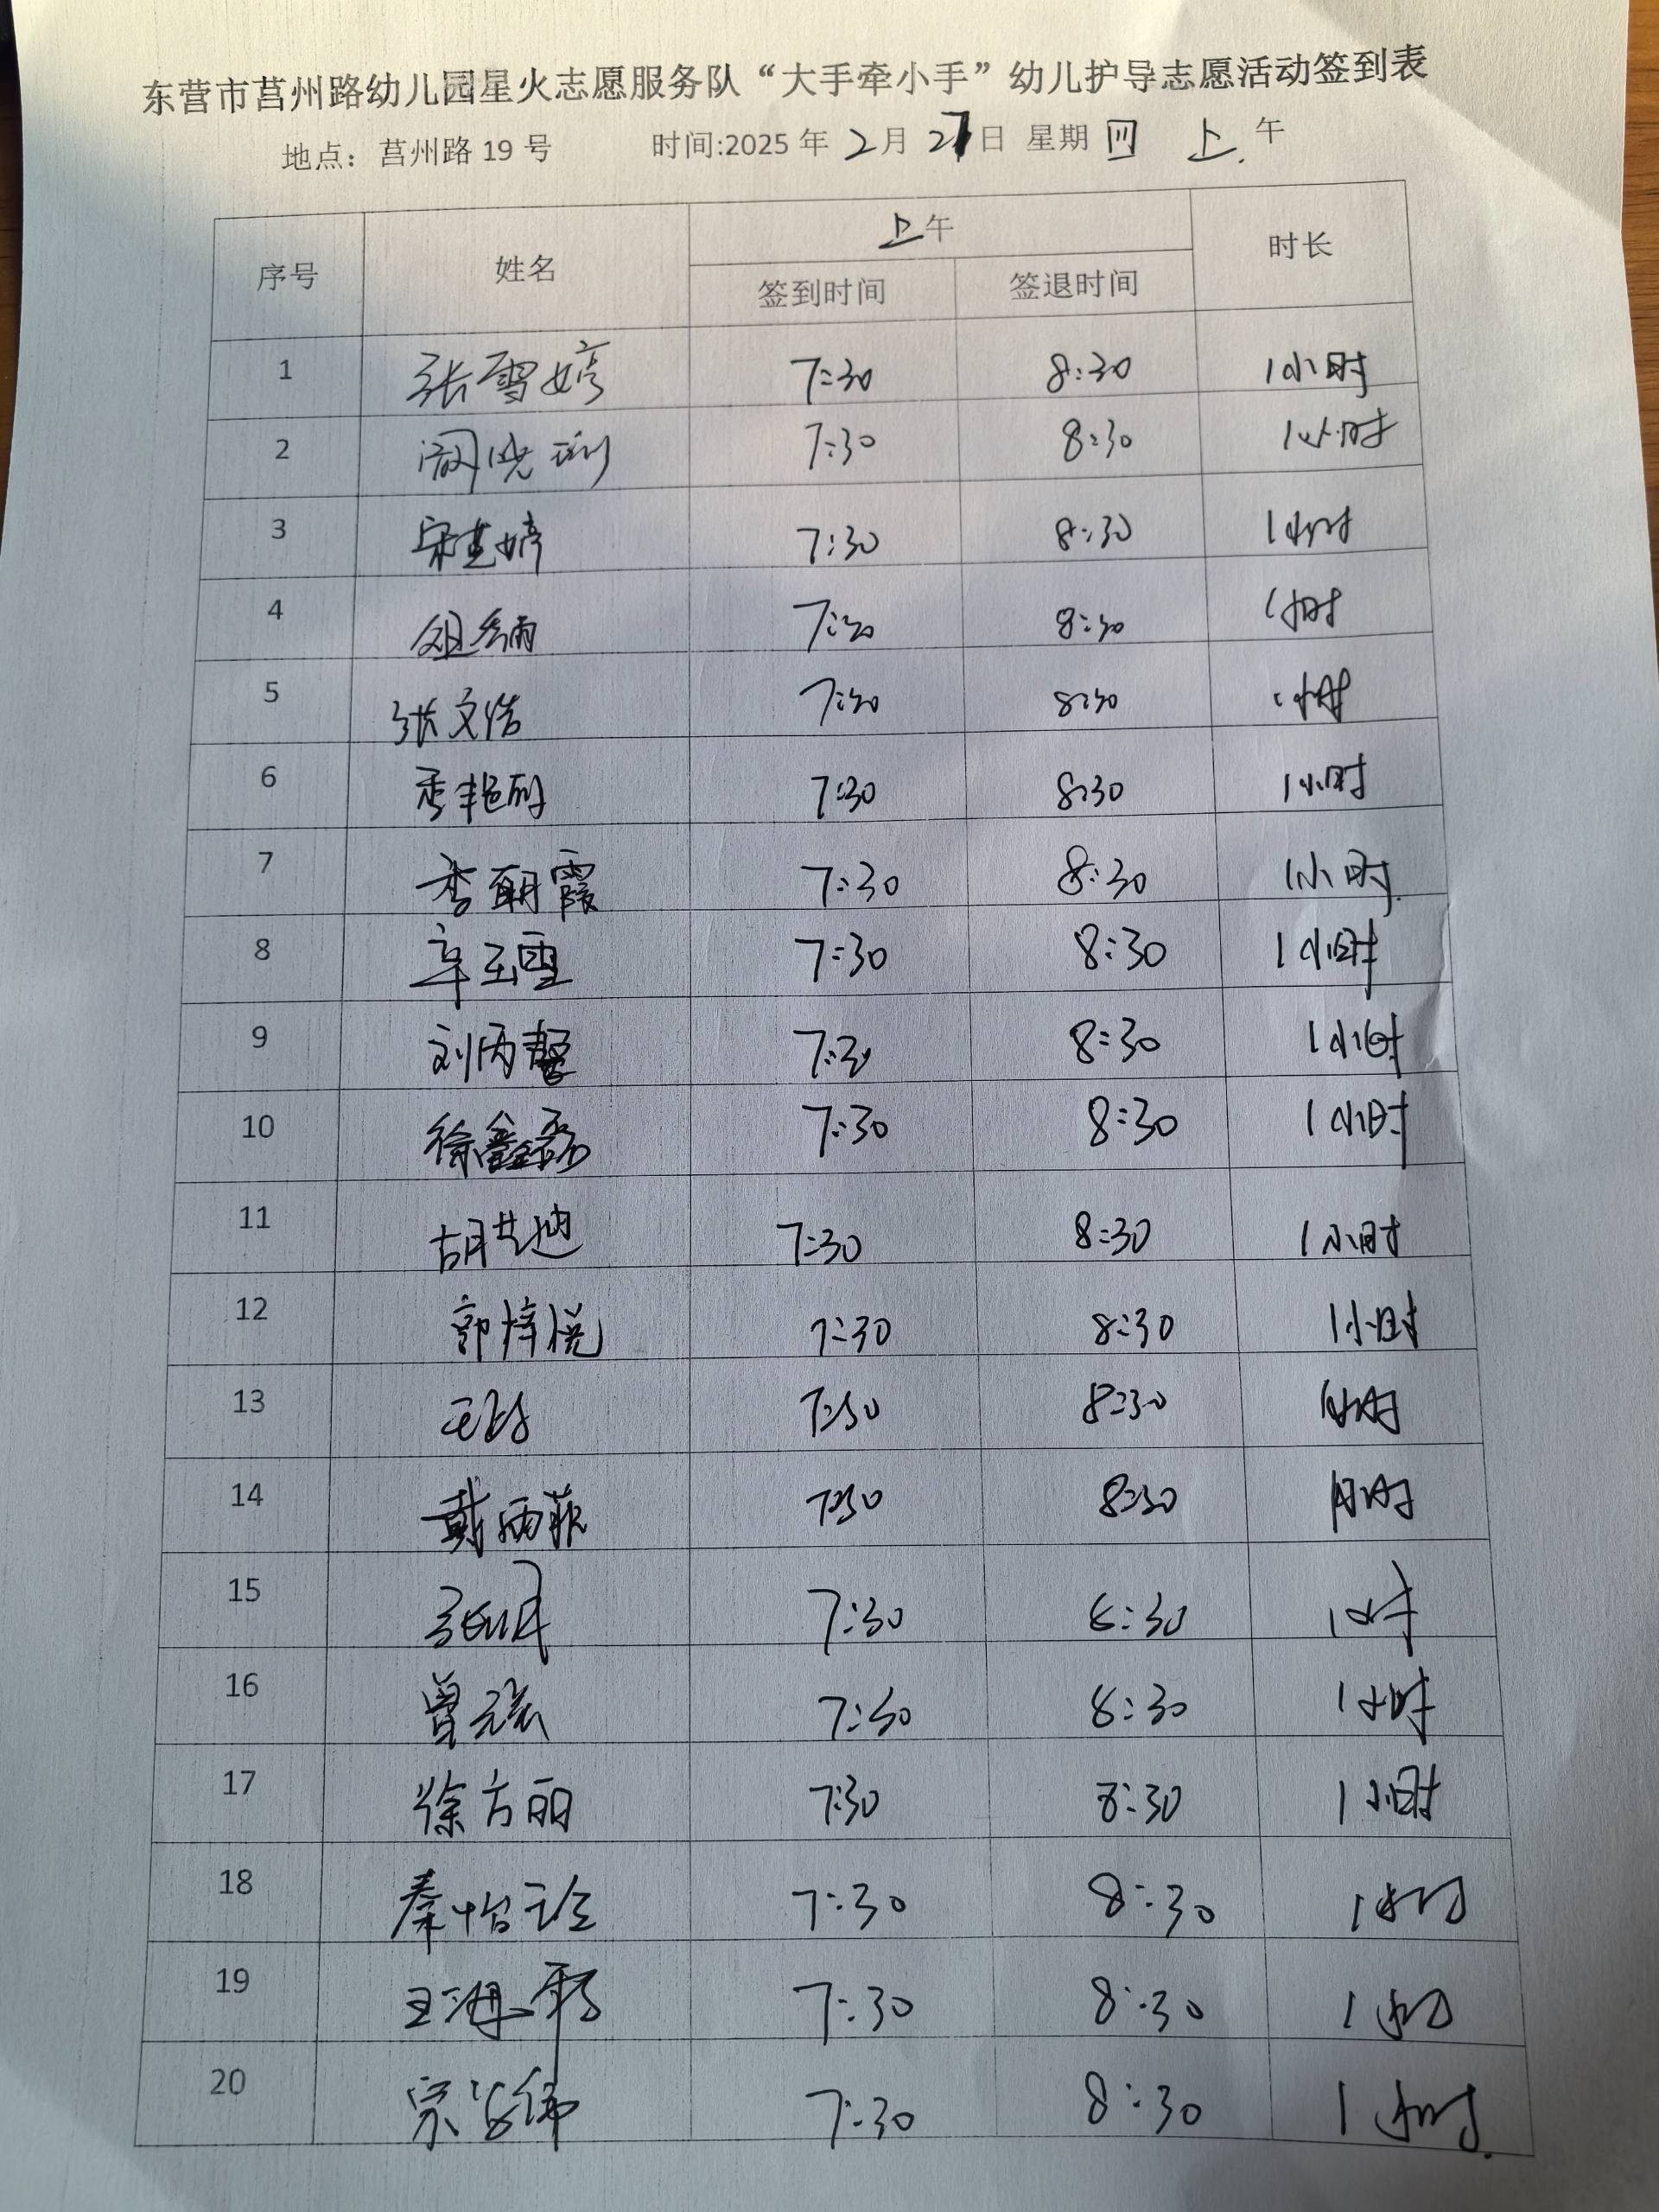 东营市莒州路幼儿园星火志愿服务队“大手牵小手”幼儿护导志愿活动签到表
地点：莒州路 19 号 时间:2025 年 2 月 27 日 星期 四 上 午
序号 姓名 上午 时长
签到时间 签退时间
1 张雪婷 7:30 8:30 1小时
2 7:30 8:30 1小时
3 7:30 8:30 1小时
4 7:30 8:30 1小时
5 张文浩 7:30 8:30 1小时
6 李艳丽 7:30 8:30 1小时
7 李朝霞 7:30 8:30 1小时
8 辛玉雪 7:30 8:30 1小时
9 刘丙 7:30 8:30 1小时
10 徐鑫磊 7:30 8:30 1小时
11 胡艺迪 7:30 8:30 1小时
12 郭梓悦 7:30 8:30 1小时
13 7:30 8:30 1小时
14 戴雨菲 7:30 8:30 1小时
15 7:30 8:30 1小时
16 曾 7:30 8:30 1小时
17 徐方丽 7:30 8:30 1小时
18 秦怡诠 7:30 8:30 1小时
19 王海 7:30 8:30 1小时
20 宗 7:30 8:30 1小时